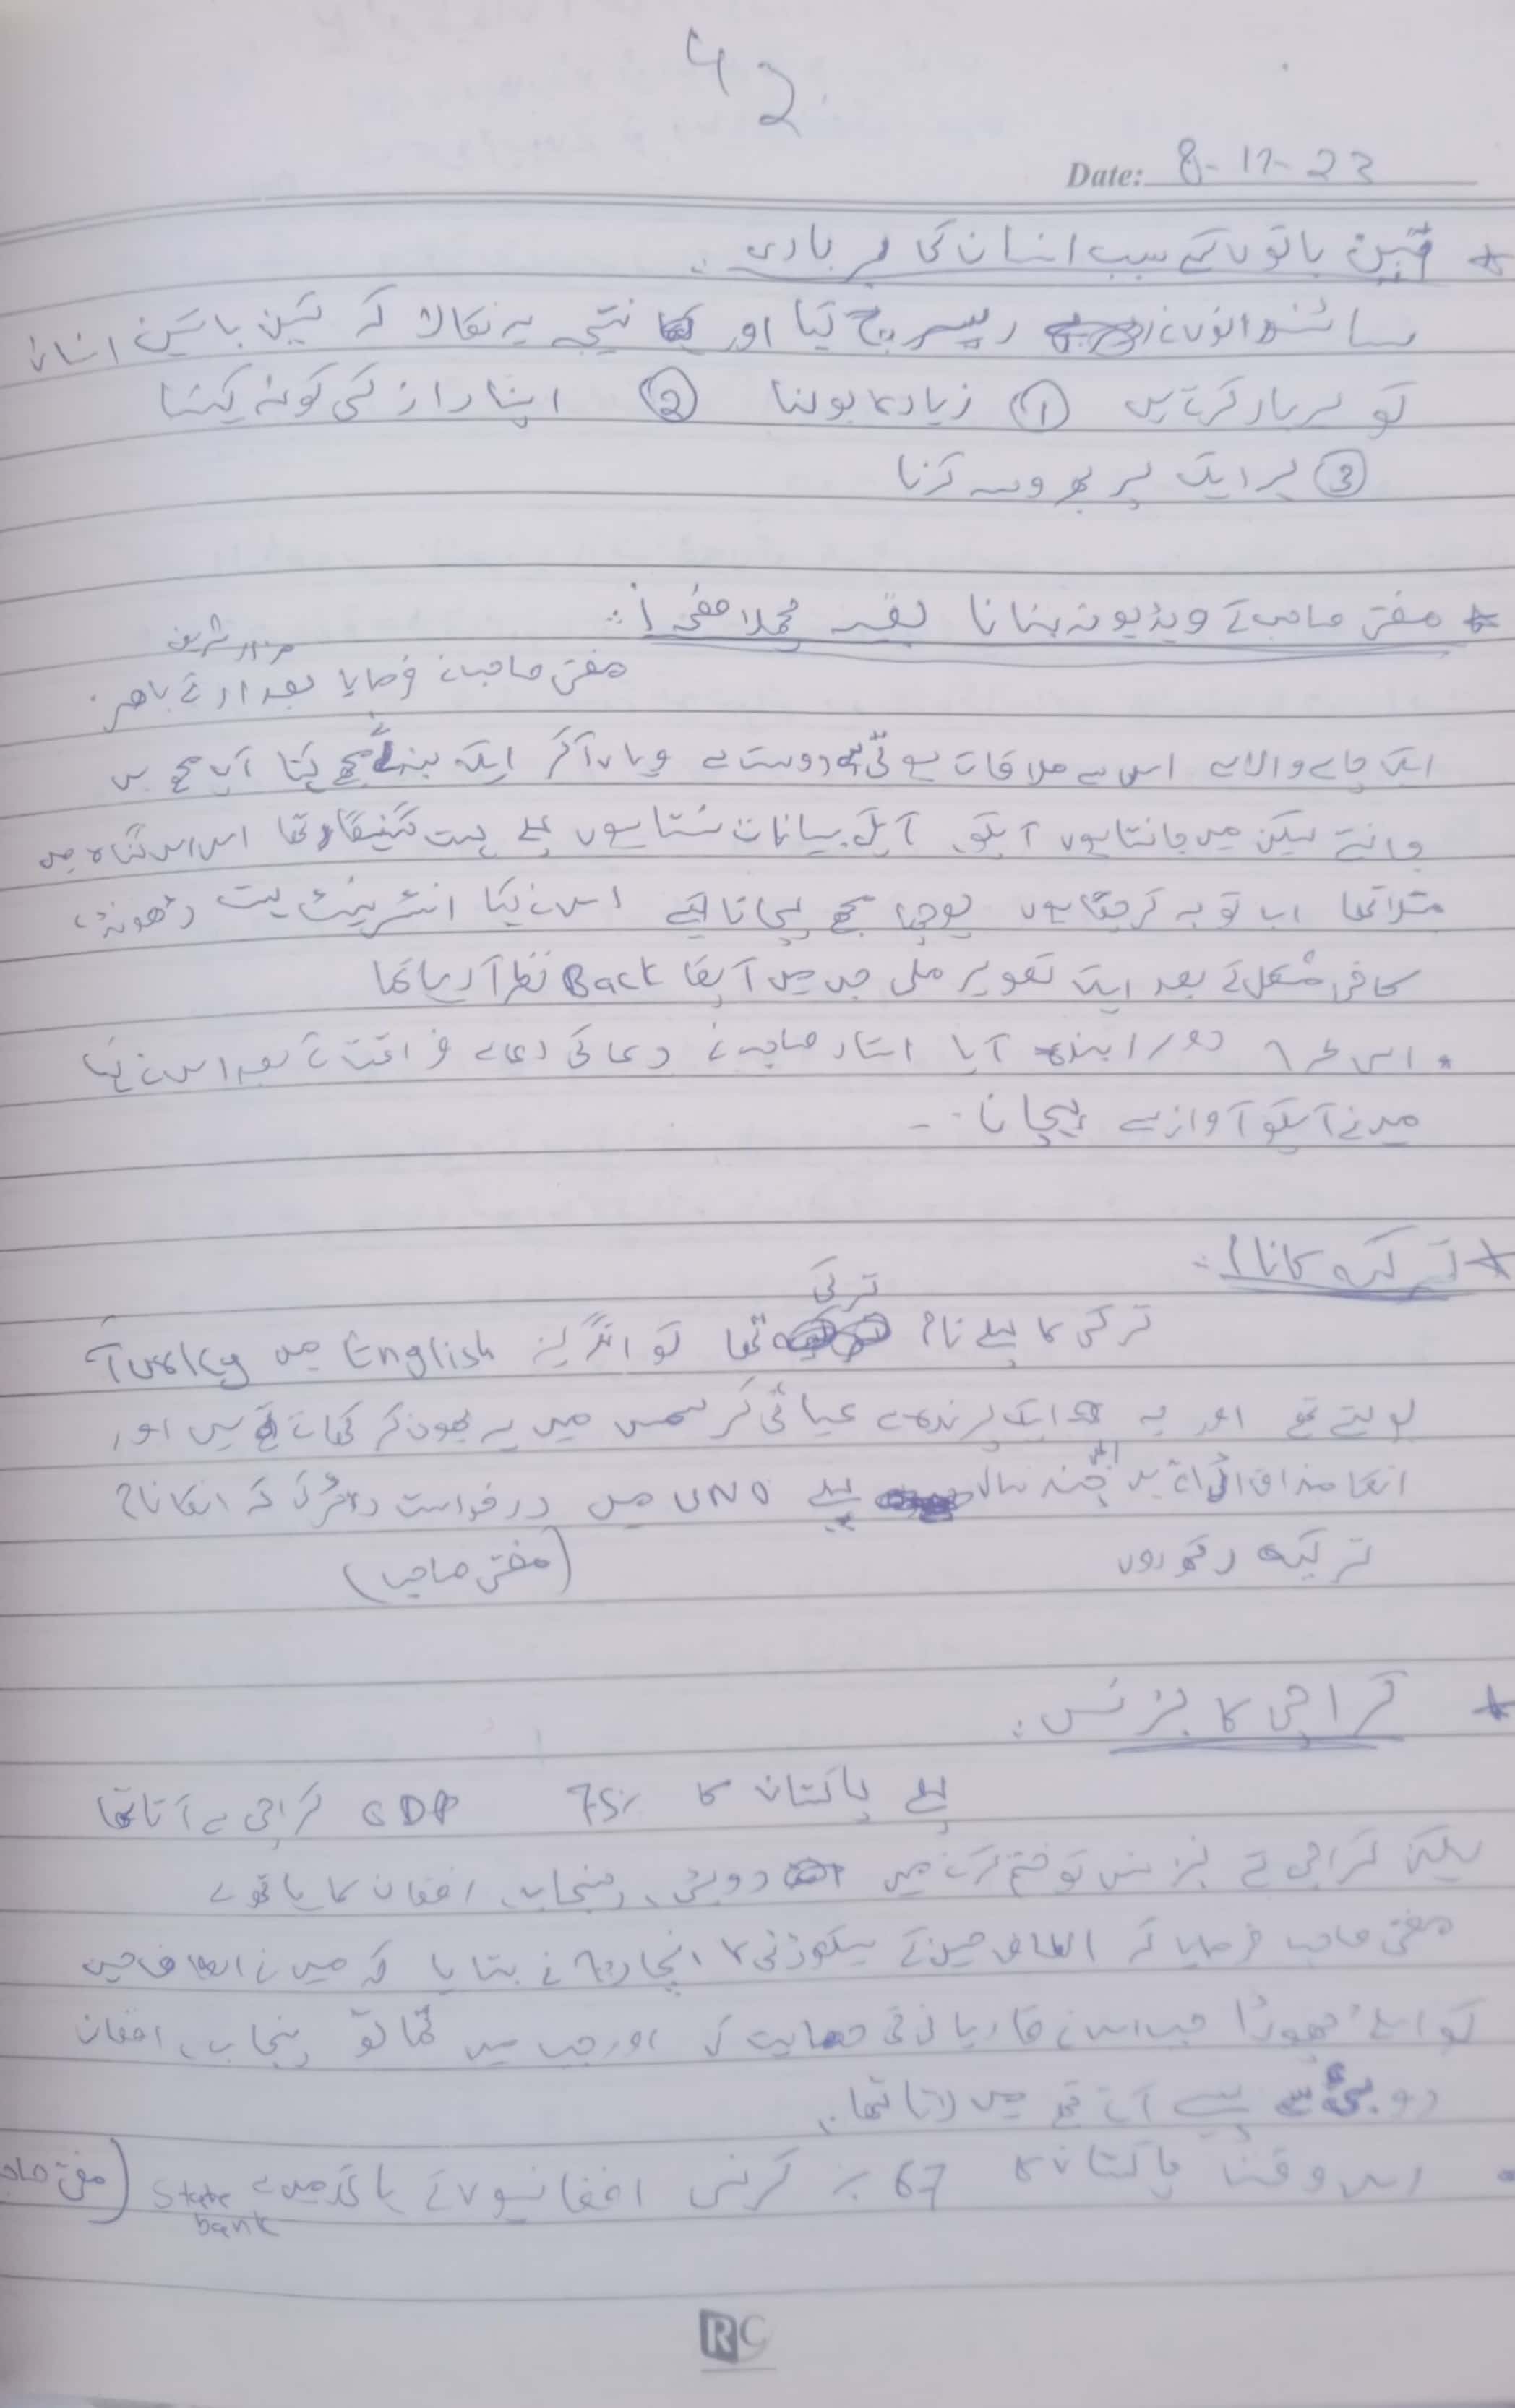 42
Date: 8-11-23
* تین باتوں کے سبب انسان کی بربادی :
سائنسدانوں نے ریسرچ کیا اور نتیجہ یہ نکالا کہ تین باتیں انسان
کو برباد کرتے ہیں ① زیادہ بولنا ② اپنا راز کسی کو نہ کہنا
③ ہر ایک پر بھروسہ کرنا
* مفتی صاحب کے ویڈیو نہ بنانا بقیہ صفحہ :
مزار شریف
مفتی صاحب نے فرمایا بغداد کے باھر
ایک چاے والا ہے اس سے ملاقات ہوئی دوست ہے وہاں آکر ایک بندے نے مجھے کہتا آپ مجھے نہیں
جانتے لیکن میں جانتا ہوں آپکو، آپکے بیانات سنتا ہوں پہلے بہت گنہگار تھا اس اس گناہ میں
مبتلا تھا اب توبہ کر چکا ہوں پوچھا مجھے پہچانا کیسے اس نے کہا انٹرنیٹ بہت ڈھونڈا
کافی مشکل کے بعد ایک تصویر ملی جس میں آپکا Back نظر آرہا تھا
* اس طرح دوسرا بندہ آیا استاد صاحب نے دعا کی دعا سے فراغت کے بعد اس نے کہا
میں نے آپکو آواز سے پہچانا ۔۔
* ترکیہ کا نام :
ترکی
ترکی کا پہلے نام تھا تو انگریز English میں Turkey
بولتے تھے اور یہ ایک پرندہ ہے عیسائی کرسمس میں یہ بھون کر کھاتے ہیں اور
انکا مذاق اڑاتے ہیں چند سال پہلے UNO میں درخواست دائر کی کہ انکا نام
ترکیہ رکھ دوں (مفتی صاحب)
* کراچی کا بزنس :
پہلے پاکستان کا 75% GDP کراچی سے آتا تھا
لیکن کراچی کے بزنس کو ختم کرنے میں دوبئی، پنجاب، افغان کا ہاتھ ہے
مفتی صاحب فرمایا کہ الطاف حسین کے سیکورٹی کا انچارج نے بتایا کہ میں نے الطاف حسین
کو اسلئے چھوڑا جب اس نے قادیانی کی حمایت کی اور جب میں تھا تو پنجاب، افغان
دوبئی سے پیسے آتے تھے میں لاتا تھا۔
• اس وقت پاکستان کا 67% کرنسی افغانیوں کے ہاتھ میں ہے State bank (مفتی صاحب
RC